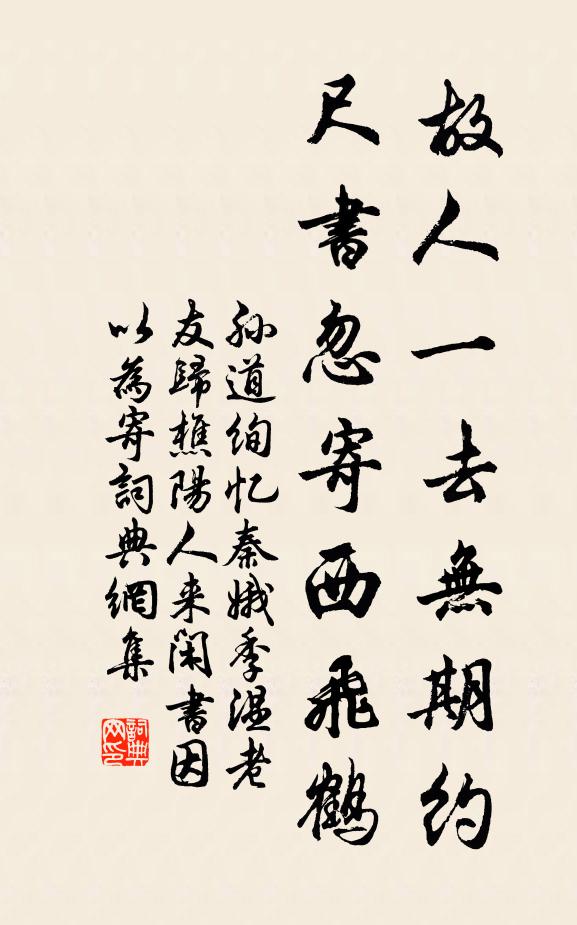 故人一去無期約
尺書忽寄西飛鶴
孙道絢忆秦娥季温老
友歸樵陽人来閑書因
以為寄詞典網集
詞典
网印